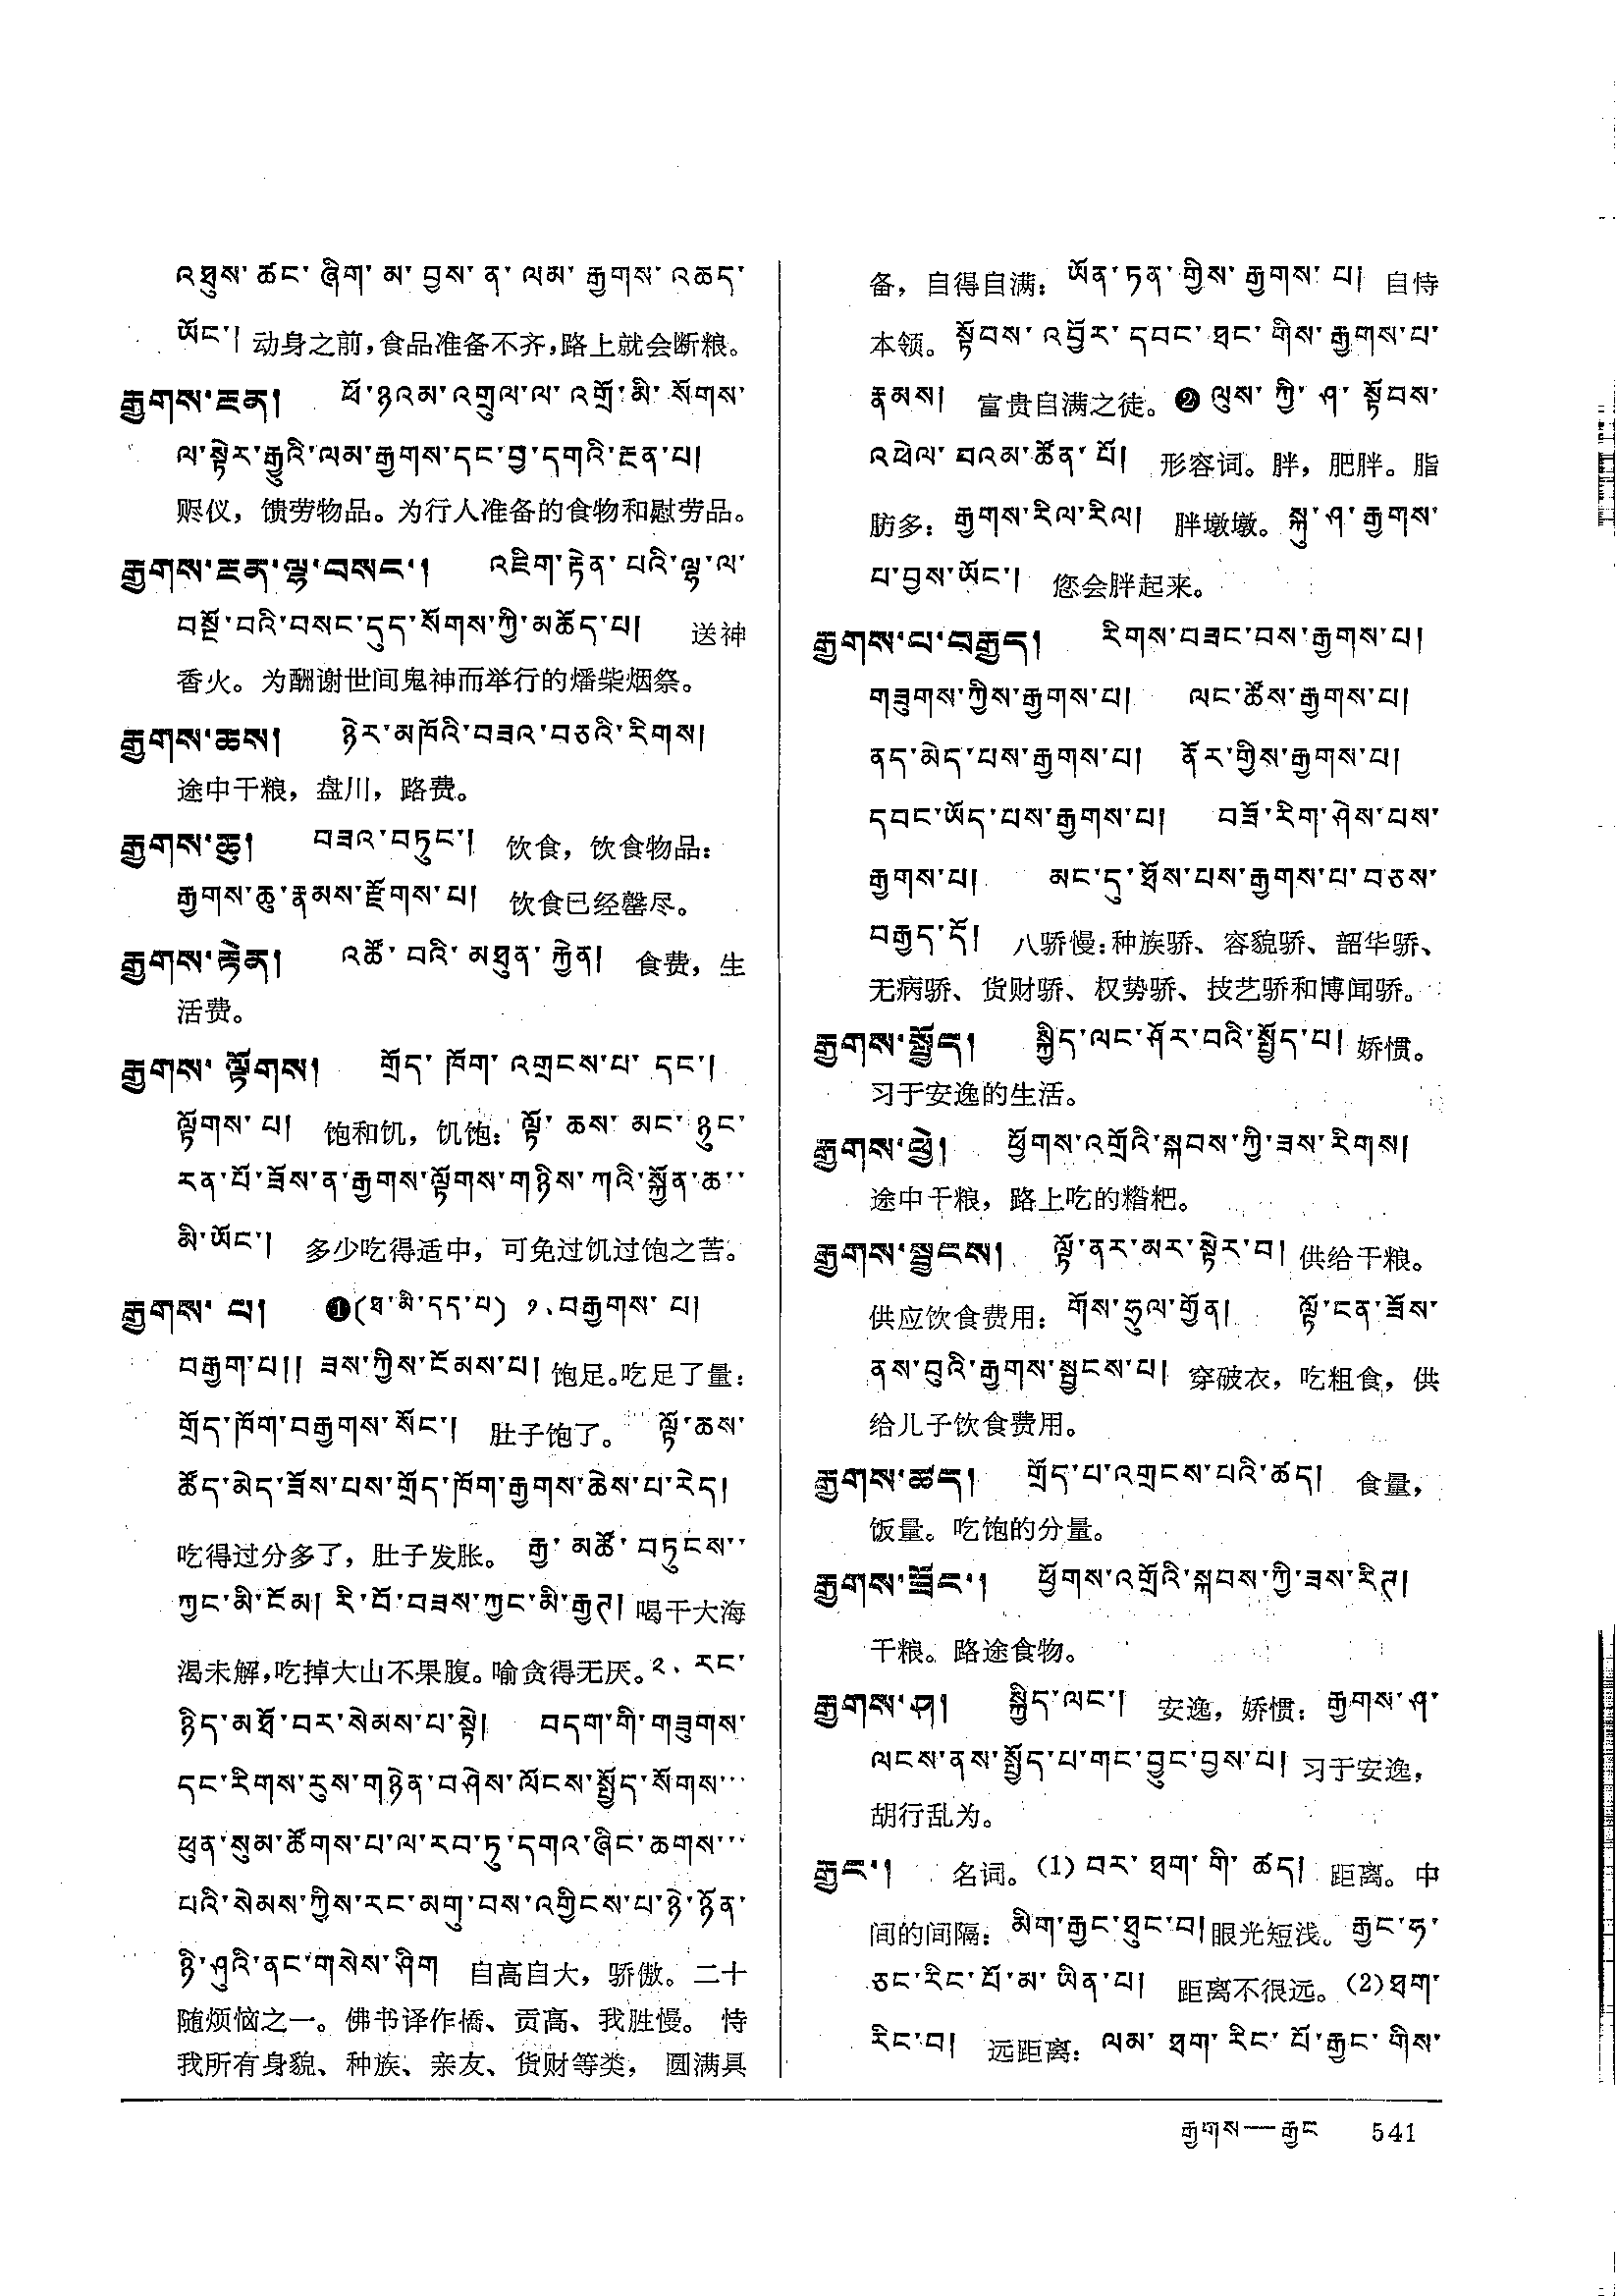 འཐུས་ཚང་ཞིག་མ་བྱས་ན་ལམ་རྒྱགས་འཆད་
ཡོང་། 动身之前,食品准备不齐,路上就会断粮。
རྒྱགས་རྫན། ཕོ་ཉའམ་འགྲུལ་ལ་འགྲོ་མི་སོགས་
ལ་སྟེར་རྒྱུའི་ལམ་རྒྱགས་དང་བྱ་དགའི་རྫན་པ།
赆仪，馈劳物品。为行人准备的食物和慰劳品。
རྒྱགས་རྫན་ལྷ་བསང་། འཇིག་རྟེན་པའི་ལྷ་ལ་
བསྔོ་བའི་བསང་དུད་སོགས་ཀྱི་མཆོད་པ། 送神
香火。为酬谢世间鬼神而举行的燔柴烟祭。
རྒྱགས་ཆས། ཉེར་མཁོའི་བཟའ་བཅའི་རིགས།
途中干粮，盘川，路费。
རྒྱགས་ཆུ། བཟའ་བཏུང་། 饮食，饮食物品：
རྒྱགས་ཆུ་རྣམས་རྫོགས་པ། 饮食已经罄尽。
རྒྱགས་རྟེན། འཚོ་བའི་མཐུན་རྐྱེན། 食费，生
活费。
རྒྱགས་ལྟོགས། གྲོད་ཁོག་འགྲངས་པ་དང་།
ལྟོགས་པ། 饱和饥，饥饱：ལྟོ་ཆས་མང་ཉུང་
རན་པོ་ཟོས་ན་རྒྱགས་ལྟོགས་གཉིས་ཀའི་སྐྱོན་ཆ་་
མི་ཡོང་། 多少吃得适中，可免过饥过饱之苦。
རྒྱགས་པ། ❶(ཐ་མི་དད་པ) ༡.བརྒྱགས་པ།
བརྒྱག་པ།། ཟས་ཀྱིས་ངོམས་པ། 饱足。吃足了量：
གྲོད་ཁོག་བརྒྱགས་སོང་། 肚子饱了。 ལྟོ་ཆས་
ཚོད་མེད་ཟོས་པས་གྲོད་ཁོག་རྒྱགས་ཆེས་པ་རེད།
吃得过分多了，肚子发胀。 རྒྱ་མཚོ་བཏུངས་་
ཀྱང་མི་ངོམ། རི་བོ་བཟས་ཀྱང་མི་རྒྱཊ། 喝干大海
渴未解,吃掉大山不果腹。喻贪得无厌。༢. རང་
ཉིད་མཐོ་བར་སེམས་པ་སྟེ། བདག་གི་གཟུགས་
དང་རིགས་རུས་གཉེན་བཤེས་ལོངས་སྤྱོད་སོགས་་་
ཕུན་སུམ་ཚོགས་པ་ལ་རབ་ཏུ་དགའ་ཞིང་ཆགས་་་
པའི་སེམས་ཀྱིས་རང་མགུ་བས་འགྱིངས་པ་ཉེ་ཉོན་
ཉི་ཤུའི་ནང་གསེས་ཤིག 自高自大，骄傲。二十
随烦恼之一。佛书译作憍、贡高、我胜慢。 恃
我所有身貌、种族、亲友、货财等类， 圆满具
备，自得自满：ཡོན་ཏན་གྱིས་རྒྱགས་པ། 自恃
本领。སྟོབས་འབྱོར་དབང་ཐང་གིས་རྒྱགས་པ་
རྣམས། 富贵自满之徒。❷ ལུས་ཀྱི་ཤ་སྟོབས་
འཕེལ་བའམ་ཚོན་པོ། 形容词。胖，肥胖。脂
肪多：རྒྱགས་རིལ་རིལ། 胖墩墩。སྐུ་ཤ་རྒྱགས་
པ་བྱས་ཡོང་། 您会胖起来。
རྒྱགས་པ་བརྒྱད། རིགས་བཟང་བས་རྒྱགས་པ།
གཟུགས་ཀྱིས་རྒྱགས་པ། ལང་ཚོས་རྒྱགས་པ།
ནད་མེད་པས་རྒྱགས་པ། ནོར་གྱིས་རྒྱགས་པ།
དབང་ཡོད་པས་རྒྱགས་པ། བཟོ་རིག་ཤེས་པས་
རྒྱགས་པ། མང་དུ་ཐོས་པས་རྒྱགས་པ་བཅས་
བརྒྱད་དོ། 八骄慢:种族骄、容貌骄、韶华骄、
无病骄、货财骄、权势骄、技艺骄和博闻骄。
རྒྱགས་སྤྱོད། སྐྱིད་ལང་ཤོར་བའི་སྤྱོད་པ། 娇惯。
习于安逸的生活。
རྒྱགས་ཕྱེ། ཕྱོགས་འགྲོའི་སྐབས་ཀྱི་ཟས་རིགས།
途中干粮，路上吃的糌粑。
རྒྱགས་སྦྱངས། ལྟོ་ནར་མར་སྟེར་བ། 供给干粮。
供应饮食费用：གོས་ཧྲུལ་གྱོན། ལྟོ་ངན་ཟོས་
ནས་བུའི་རྒྱགས་སྦྱངས་པ། 穿破衣，吃粗食，供
给儿子饮食费用。
རྒྱགས་ཚད། གྲོད་པ་འགྲངས་པའི་ཚད། 食量，
饭量。吃饱的分量。
རྒྱགས་ཟོང་། ཕྱོགས་འགྲོའི་སྐབས་ཀྱི་ཟས་རིཊ།
干粮。路途食物。
རྒྱགས་ཤ། སྐྱིད་ལང་། 安逸，娇惯：རྒྱགས་ཤ་
ལངས་ནས་སྤྱོད་པ་གང་བྱུང་བྱས་པ། 习于安逸，
胡行乱为。
རྒྱང་། 名词。(1) བར་ཐག་གི་ཚད། 距离。中
间的间隔：མིག་རྒྱང་ཐུང་བ། 眼光短浅。རྒྱང་ཧ་
ཅང་རིང་པོ་མ་ཡིན་པ། 距离不很远。(2)ཐག་
རིང་བ། 远距离：ལམ་ཐག་རིང་པོ་རྒྱང་གིས་
རྒྱགས—རྒྱང 541